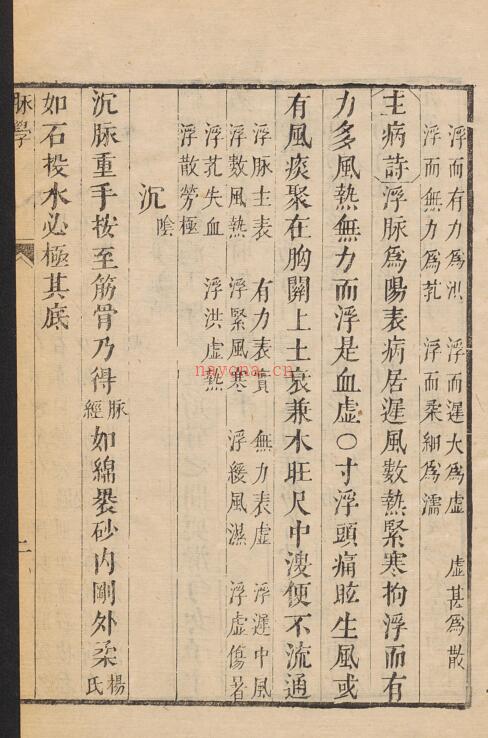 浮而有力爲洪　浮而遲大爲虛　虛甚爲散
浮而無力爲芤　浮而柔細爲濡
主病詩浮脈爲陽表病居遲風數熱緊寒拘浮而有
力多風熱無力而浮是血虛〇寸浮頭痛眩生風或
有風痰聚在胸關上土衰兼木旺尺中溲便不流通
浮脈主表　有力表實　無力表虛　浮遲中風
浮數風熱　浮緊風寒　浮緩風濕　浮虛傷暑
浮芤失血　浮洪虛熱
浮散勞極
沉陰
沉脈重手按至筋骨乃得脈經如綿裹砂內剛外柔楊氏
如石投水必極其底
脈學　二
nayona.cn